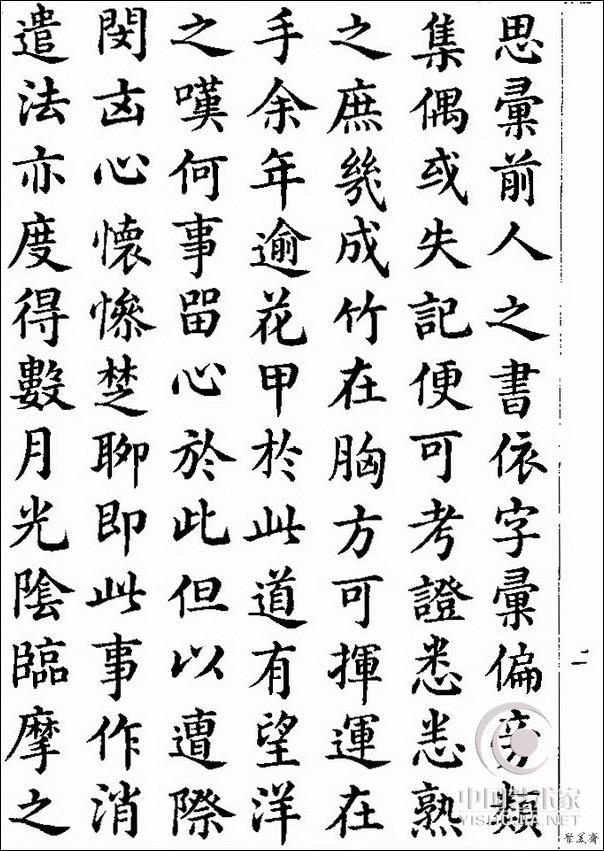 思彙前人之書依字彙偏旁類
集偶或失記便可考證悉悉熟
之庶幾成竹在胸方可揮運在
手余年逾花甲於此道有望洋
之嘆何事留心於此但以遭際
閔㐫心懐慘楚聊即此事作消
遣法亦度得數月光陰臨摩之
二
中国艺术家
YISHUJIA.NET